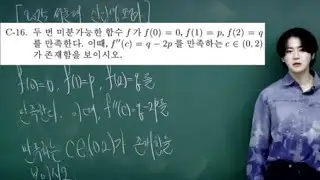 C-16. 두 번 미분가능한 함수 f가 f(0) = 0, f(1) = p, f(2) = q
를 만족한다. 이때, f''(c) = q − 2p 를 만족하는 c ∈ (0, 2)
가 존재함을 보이시오.
f(0)=0, f(1)=p, f(2)=q를
만족한다. 이때, f''(c)=q-2p를
만족하는 c∈(0,2)가 존재함을
보이시오